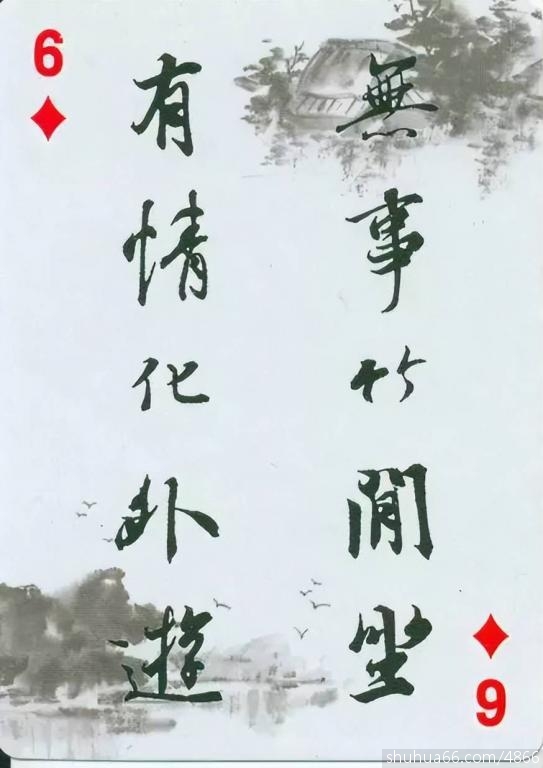 6
無事竹閒坐
有情化外遊
6
shuhua66.com/4866